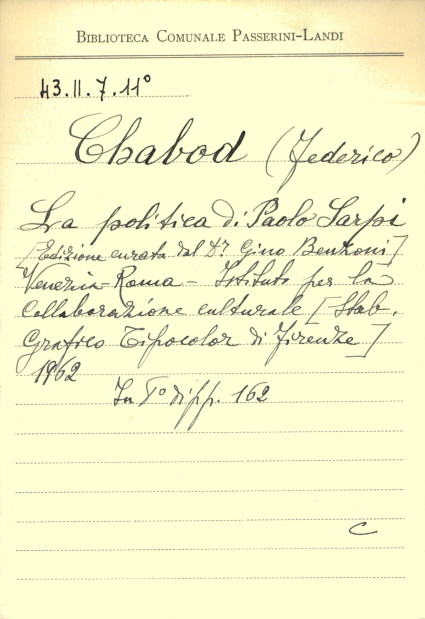 BIBLIOTECA COMUNALE PASSERINI-LANDI
43.II.7.11°
Chabod (Federico)
La politica di Paolo Sarpi
[Edizione curata dal Dr. Gino Benzoni]
Venezia-Roma - Istituto per la
Collaborazione culturale [Stab.
Grafico Tipocolor di Firenze]
1962
In 8° di pp. 162
C